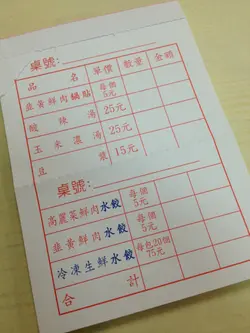 桌號:
品 名 單價 數量 金額
韭黃鮮肉鍋貼 每個5元
酸辣湯 25元
玉米濃湯 25元
豆漿 15元
桌號:
高麗菜鮮肉水餃 每個5元
韭黃鮮肉水餃 每個5元
冷凍生鮮水餃 每包20個75元
合計